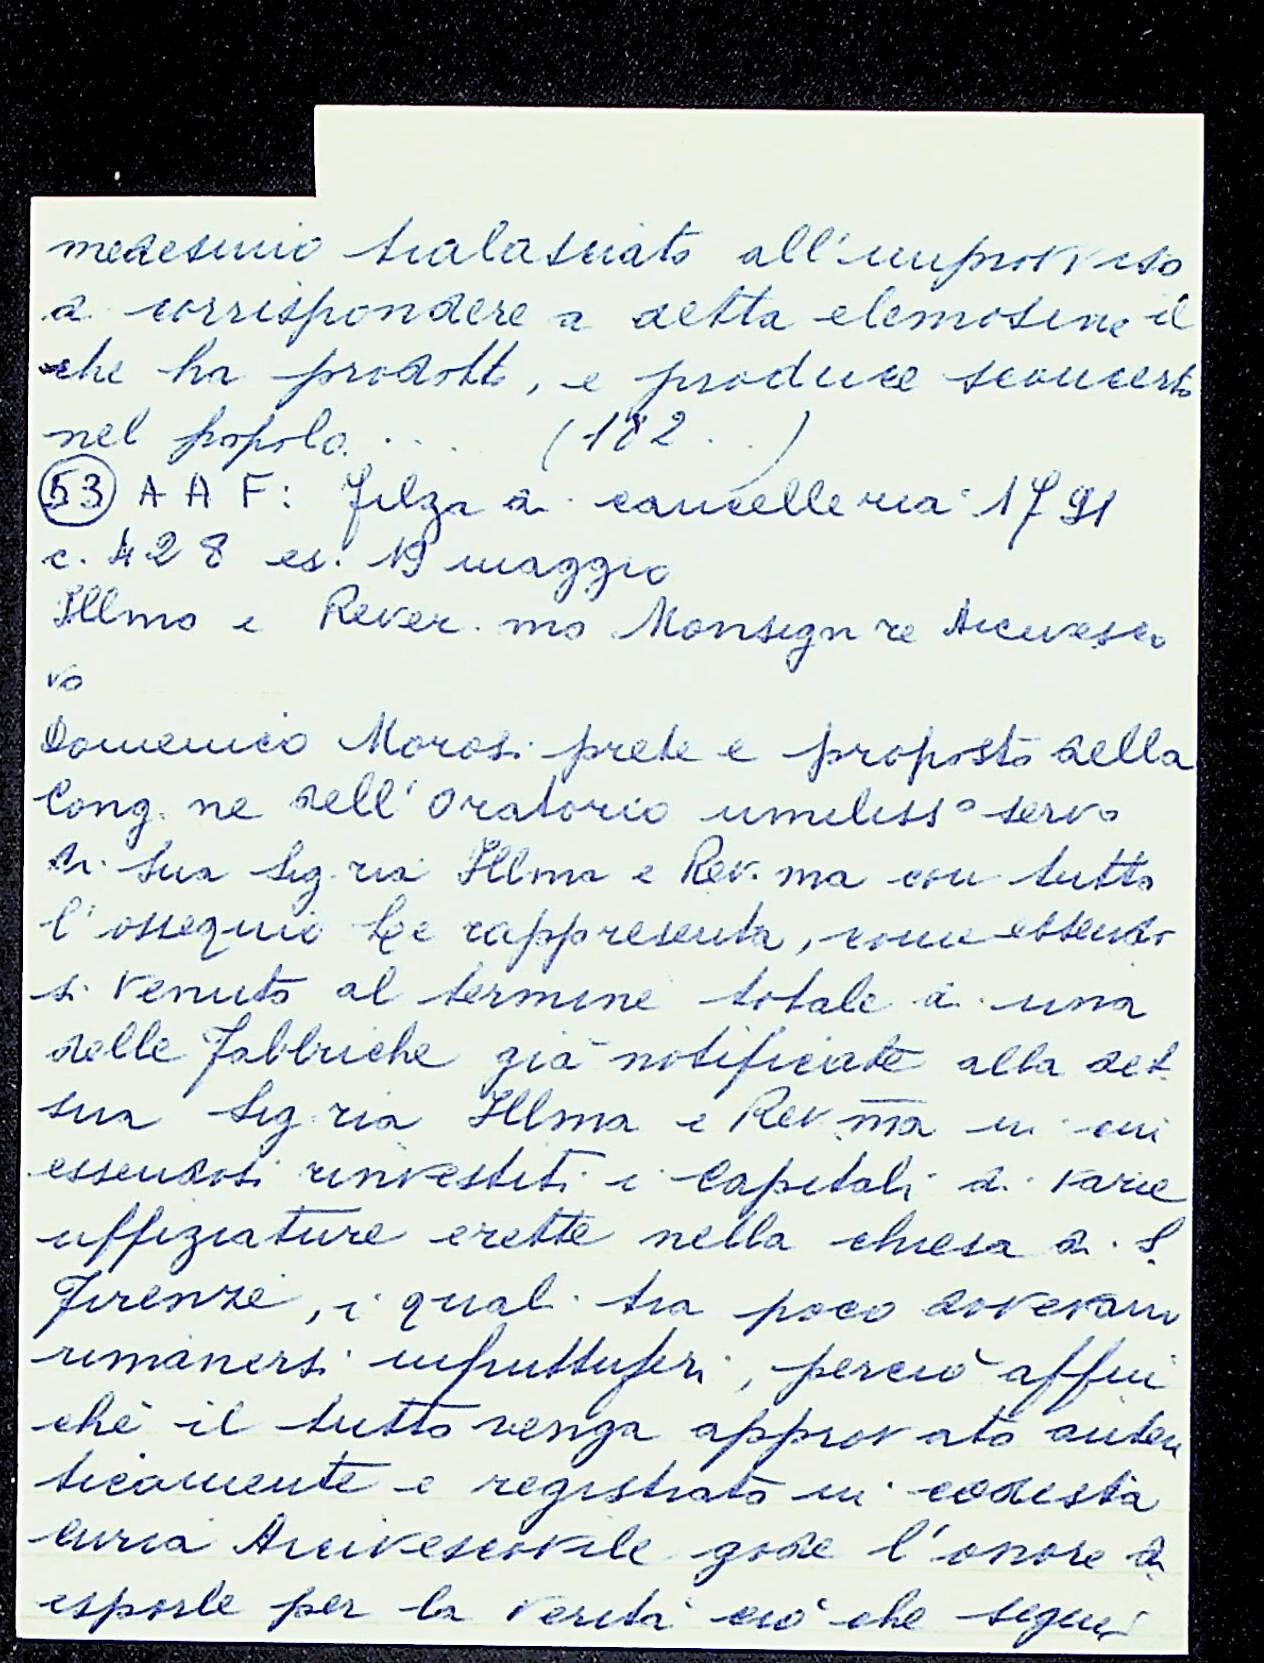 medesimo tralasciato all'improvviso
di corrispondere a detta elemosine il
che ha prodott, e produce sconcerto
nel popolo. . . . (182 . . )
53 A A F: Filza di cancelleria 1791
c. 428 es. 19 maggio
Illmo e Rever. mo Monsignre Arcivesco
vo
Domenico Morosi prete e proposto della
Cong. ne dell'Oratorio umiliss° servo
di Sua Sig. ria Illma e Rev. ma con tutto
l'ossequio Le rappresenta, come essendo
si venuto al termine totale di una
delle Fabbriche già notificate alla det.
sua Sig. ria Illma e Rev. ma in cui
essendosi rinvestiti i Capitali di varie
uffiziature erette nella chiesa di S.
Firenze, i quali tra poco dovevano
rimanersi infruttuferi, perciò affin
chè il tutto venga approvato auten
ticamente e registrato in codesta
curia Arcivescovile gode l'onore di
esporle per la verità ciò che segue